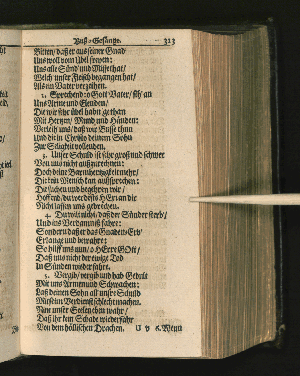 Buß-Gesänge. 313
Bitten/ daß er aus seiner Gnad
Uns woll vom Übel freyen:
Uns alle Sünd und Missethat/
Welch unser Fleisch begangen hat/
Als ein Vater verzeihen.
2. Sprechend: o Gott Vater/ sih an
Uns Arme und Elenden/
Die wir sehr übel habn gethan
Mit Hertzen/ Mund und Händen:
Verleih uns/ daß wir Busse thun
Und die in Christo deinem Sohn
Zur Seligkeit vollenden.
3. Unser Schuld ist sehr groß und schwer
Von uns nicht außzurechnen:
Doch deine Barmhertzigkeit mehr/
Die kein Mensch kan außsprechen:
Die suchen und begehren wir/
Hoffend/ du werdest o HErr an dir
Nicht lassen uns gebrechen.
4. Du wilt nicht/ daß der Sünder sterb/
Und ins Verdamniß fahre:
Sondern daß er das Gnaden-Erb/
Erlange und bewahre:
So hilff uns nun/ o HErre GOtt/
Daß uns nicht der ewige Tod
In Sünden wiederfahre.
5. Vergib/ vergib und hab Gedult
Mit uns Armen und Schwachen:
Laß deinen Sohn all unsre Schuld
Mit seim Verdienst schlecht machen.
Nim unser Seelen eben wahr/
Daß ihr kein Schade wiederfahr
Von dem höllischen Drachen. U v 6. Wenn